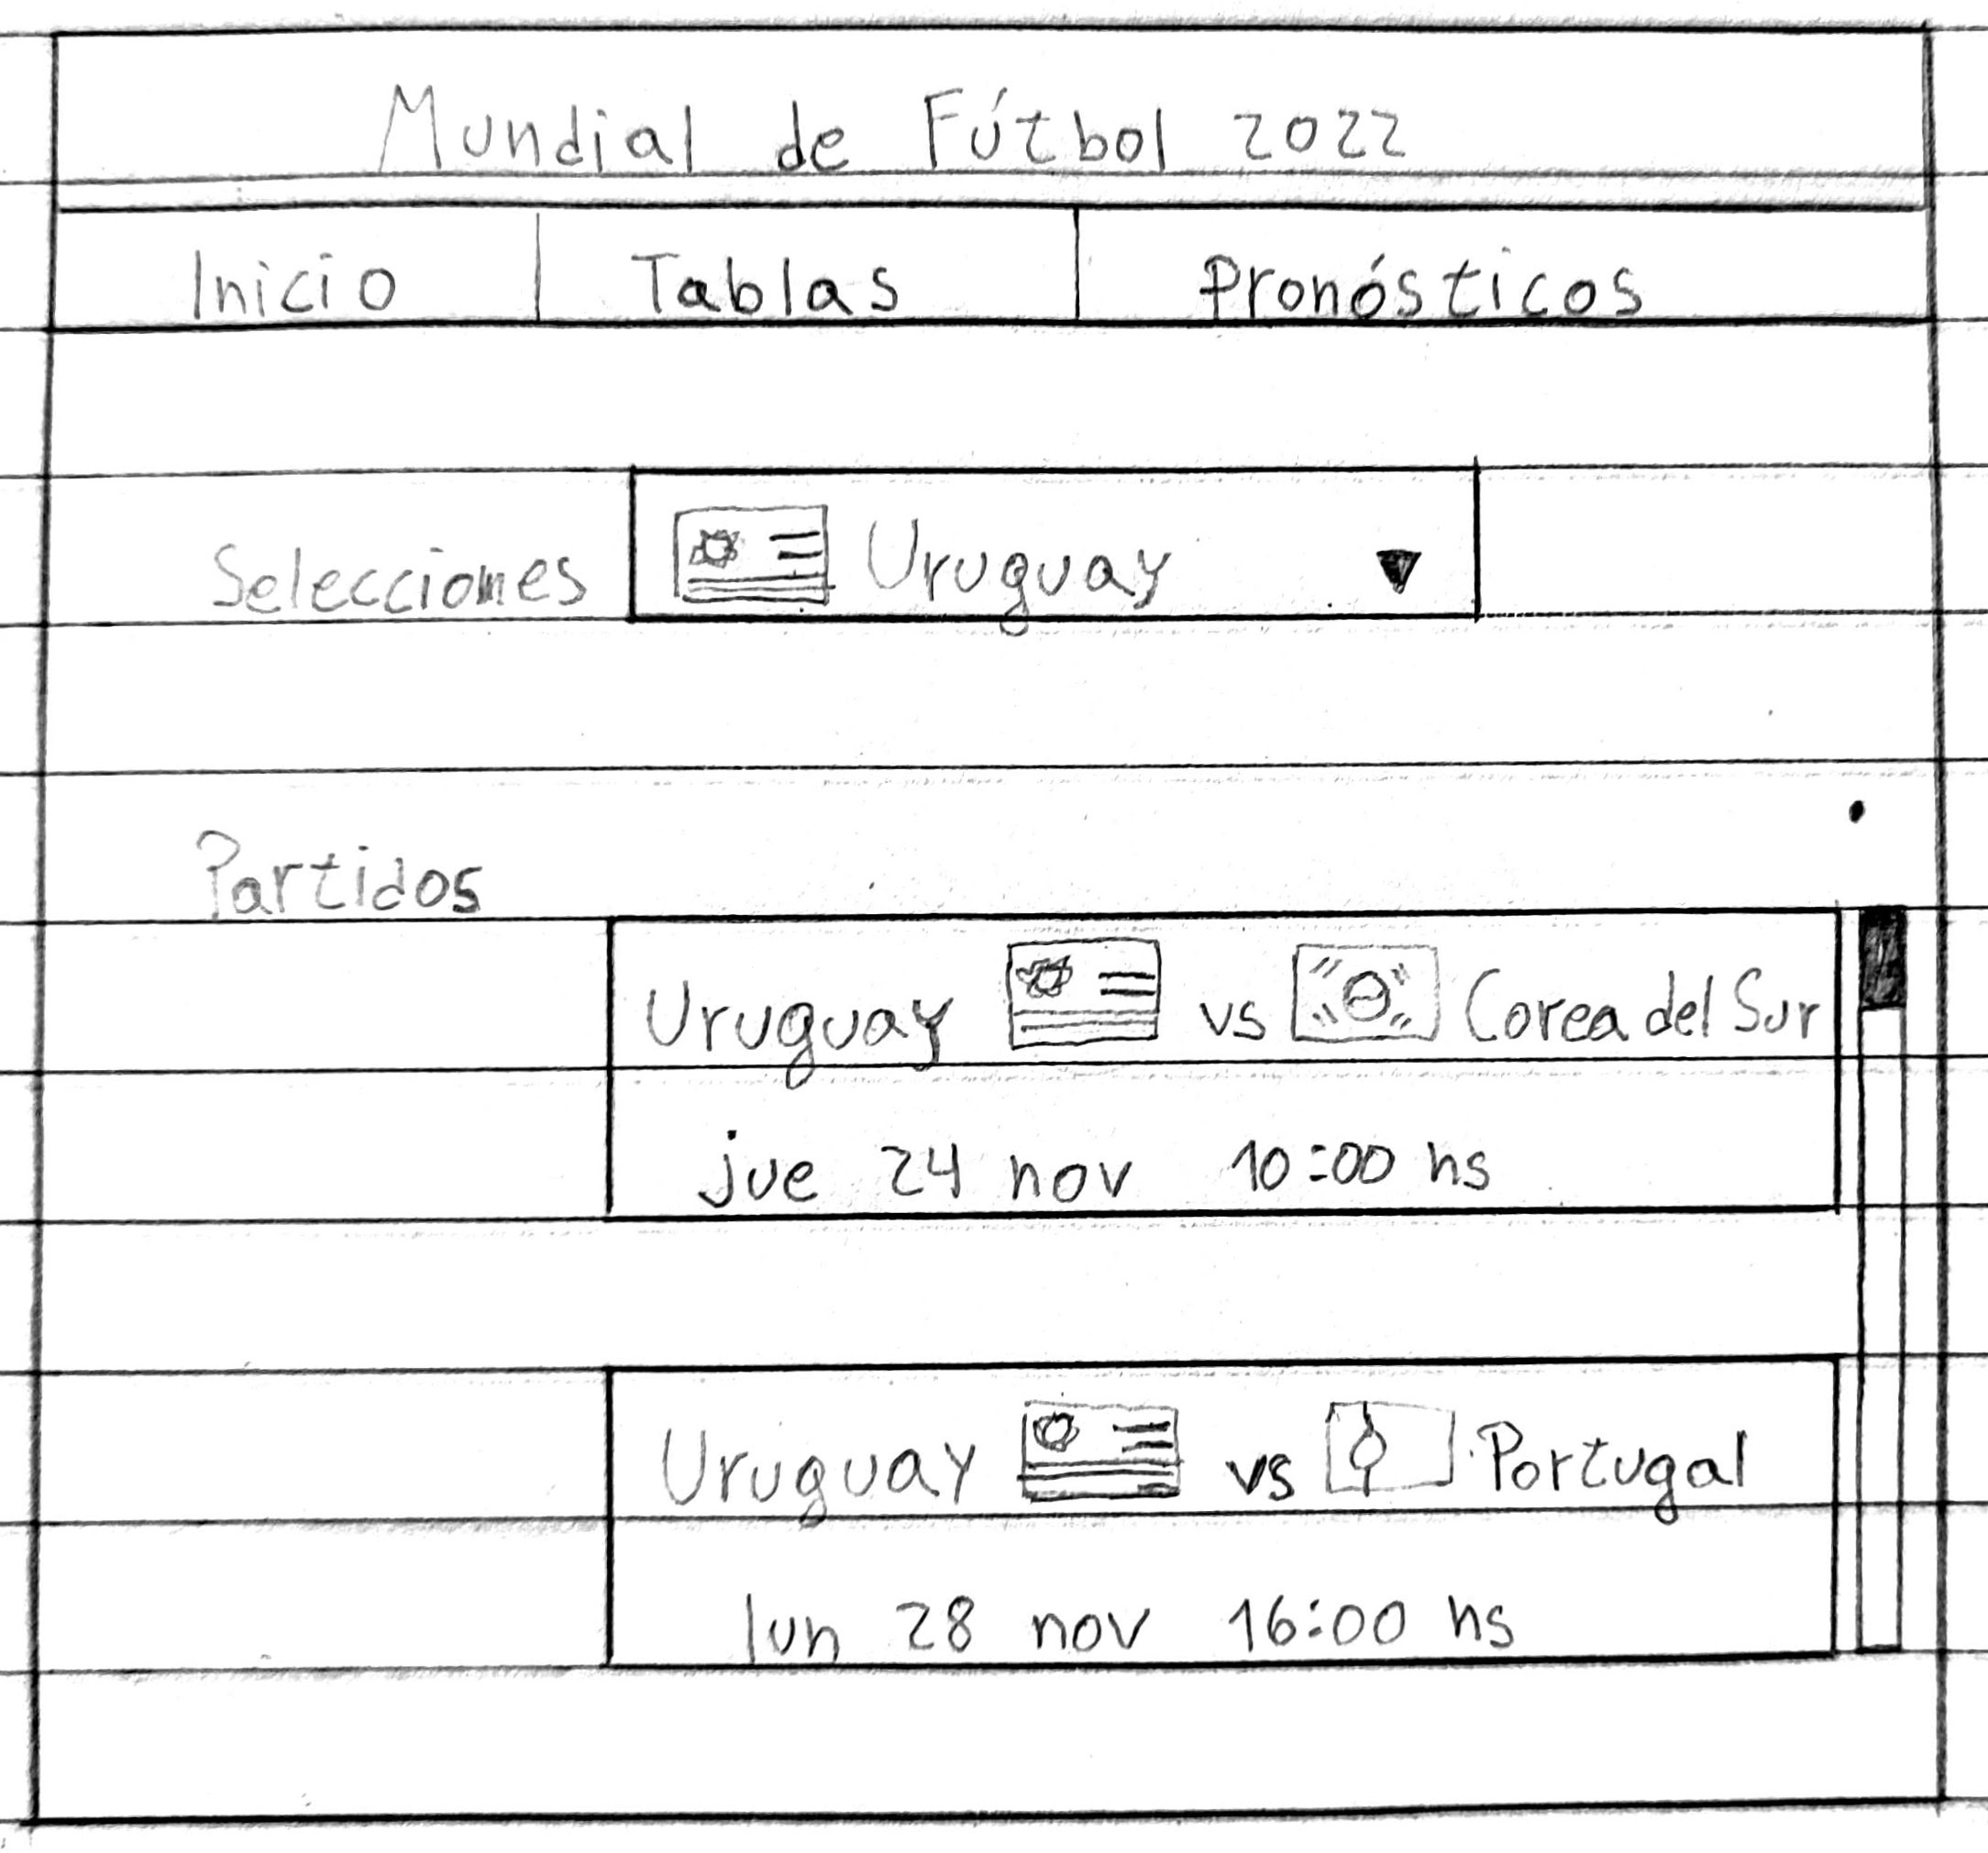 Mundial de Fútbol 2022
Inicio Tablas Pronósticos
Selecciones Uruguay
Partidos
Uruguay vs Corea del Sur
jue 24 nov 10:00 hs
Uruguay vs Portugal
lun 28 nov 16:00 hs